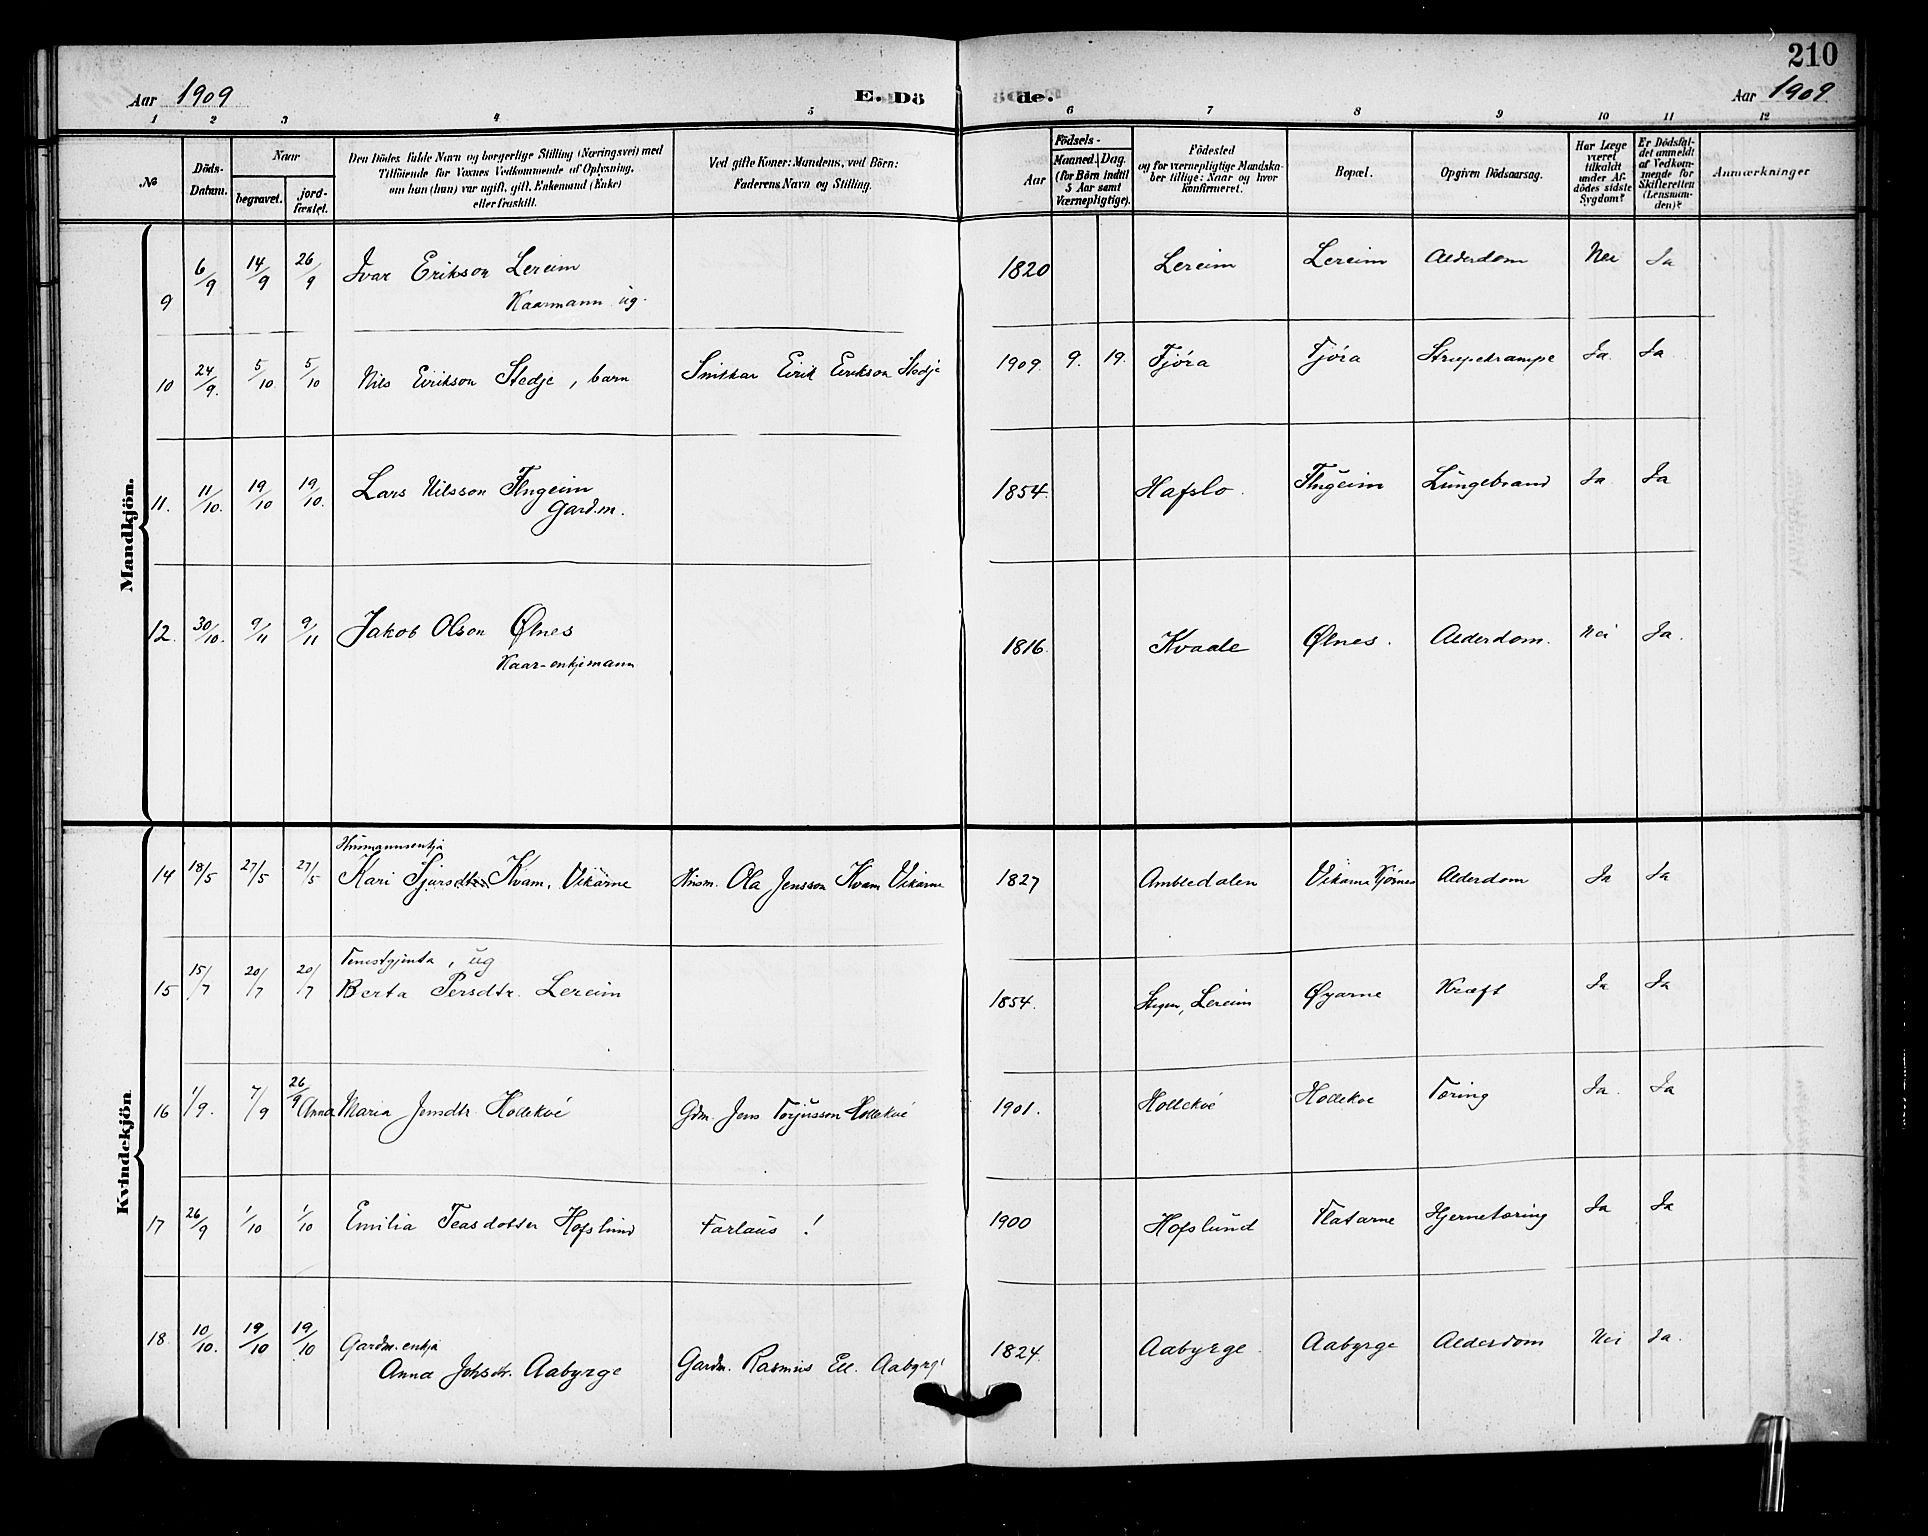 210
Aar 1909
E. Dö
de.
Aar 1909
1 2 3 4 5 6 7 8 9 10 11 12
No
Döds-
Datum.
Naar
begravet.
jord-
fæstet.
Den Dödes fulde Navn og borgerlige Stilling (Næringsvei) med
Tilföiende for Voxnes Vedkommende af Oplysning,
om han (hun) var ugift, gift, Enkemand (Enke)
eller fraskilt.
Ved gifte Koner: Mandens, ved Börn:
Faderens Navn og Stilling.
Födsels-
Aar
Maaned. Dag.
(for Börn indtil
5 Aar samt
Værnepligtige).
Födested
og for værnepligtige Mandska-
ber tillige: Naar og hvor
konfirmeret.
Bopæl.
Opgiven Dödsaarsag.
Har Læge
været
tilkaldt
under Af-
dödes sidste
Sygdom?
Er Dödsfal-
det anmeldt
af Vedkom-
mende for
Skifteretten
(Lensman-
den)?
Anmærkninger
Mandkjön.
9 6/9 14/9 26/9 Ivar Erikson Lereim 1820 Lereim Lereim Alderdom Nei Ja
Kaarmann ug.
10 24/9. 5/10. 5/10 Nils Eirikson Stedje, barn Snikkar Eirik Eirikson Stedje 1909. 9. 19. Fjöra Fjöra Strupekrampe Ja. Ja
11. 11/10. 19/10 19/10. Lars Nilsson Flugeim 1854. Hafslo. Flugeim Lungebrand Ja Ja
Gardm.
12. 30/10. 9/11 9/11 Jakob Olson Ølnes 1816. Kvaale Ølnes. Alderdom. Nei Ja.
Kaar-enkjemann
Kvindekjön
Husmannsenkja
14 18/5 27/5 27/5 Kari Sjursdtr. Kvam, Vikarne Husm. Ola Jensson Kvam Vikarne 1827 Ambledalen Vikarne Kjörnes Alderdom Ja Ja
Tenestgjenta, ug
15 15/7 20/7 20/7 Berta Persdtr. Lereim 1854. Stigen, Lereim Øyarne Kræft Ja Ja
16 1/9. 7/9 26/9 Anna Maria Jensdtr. Hollekvé Gdm. Jens Torjusson Hollekvé 1901. Hollekvé Hollekve Tæring Ja. Ja
17 26/9 1/10 1/10 Emilia Teasdotter Hofslund Farlaus! 1900 Hofslund Flatarne Hjernetæring Ja Ja
18. 10/10. 19/10 19/10 Gardm. enkja
Anna Johsdtr. Aabyrge Gardm. Rasmus Ell. Aabyrge 1824. Aabyrge. Aabyrge Alderdom Nei Ja.